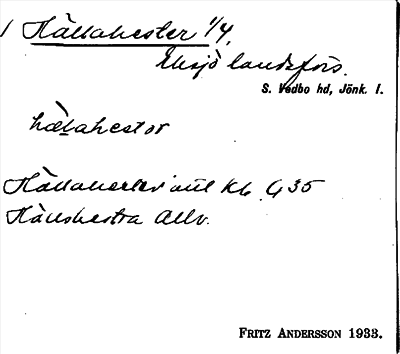 1 Hällahester 1/4.
Eksjö landsförs.
S. Vedbo hd, Jönk. l.
hälahestor
Hällahester 1/1 mtl Kb. G 35
Hälshestra Allv.
FRITZ ANDERSSON 1933.